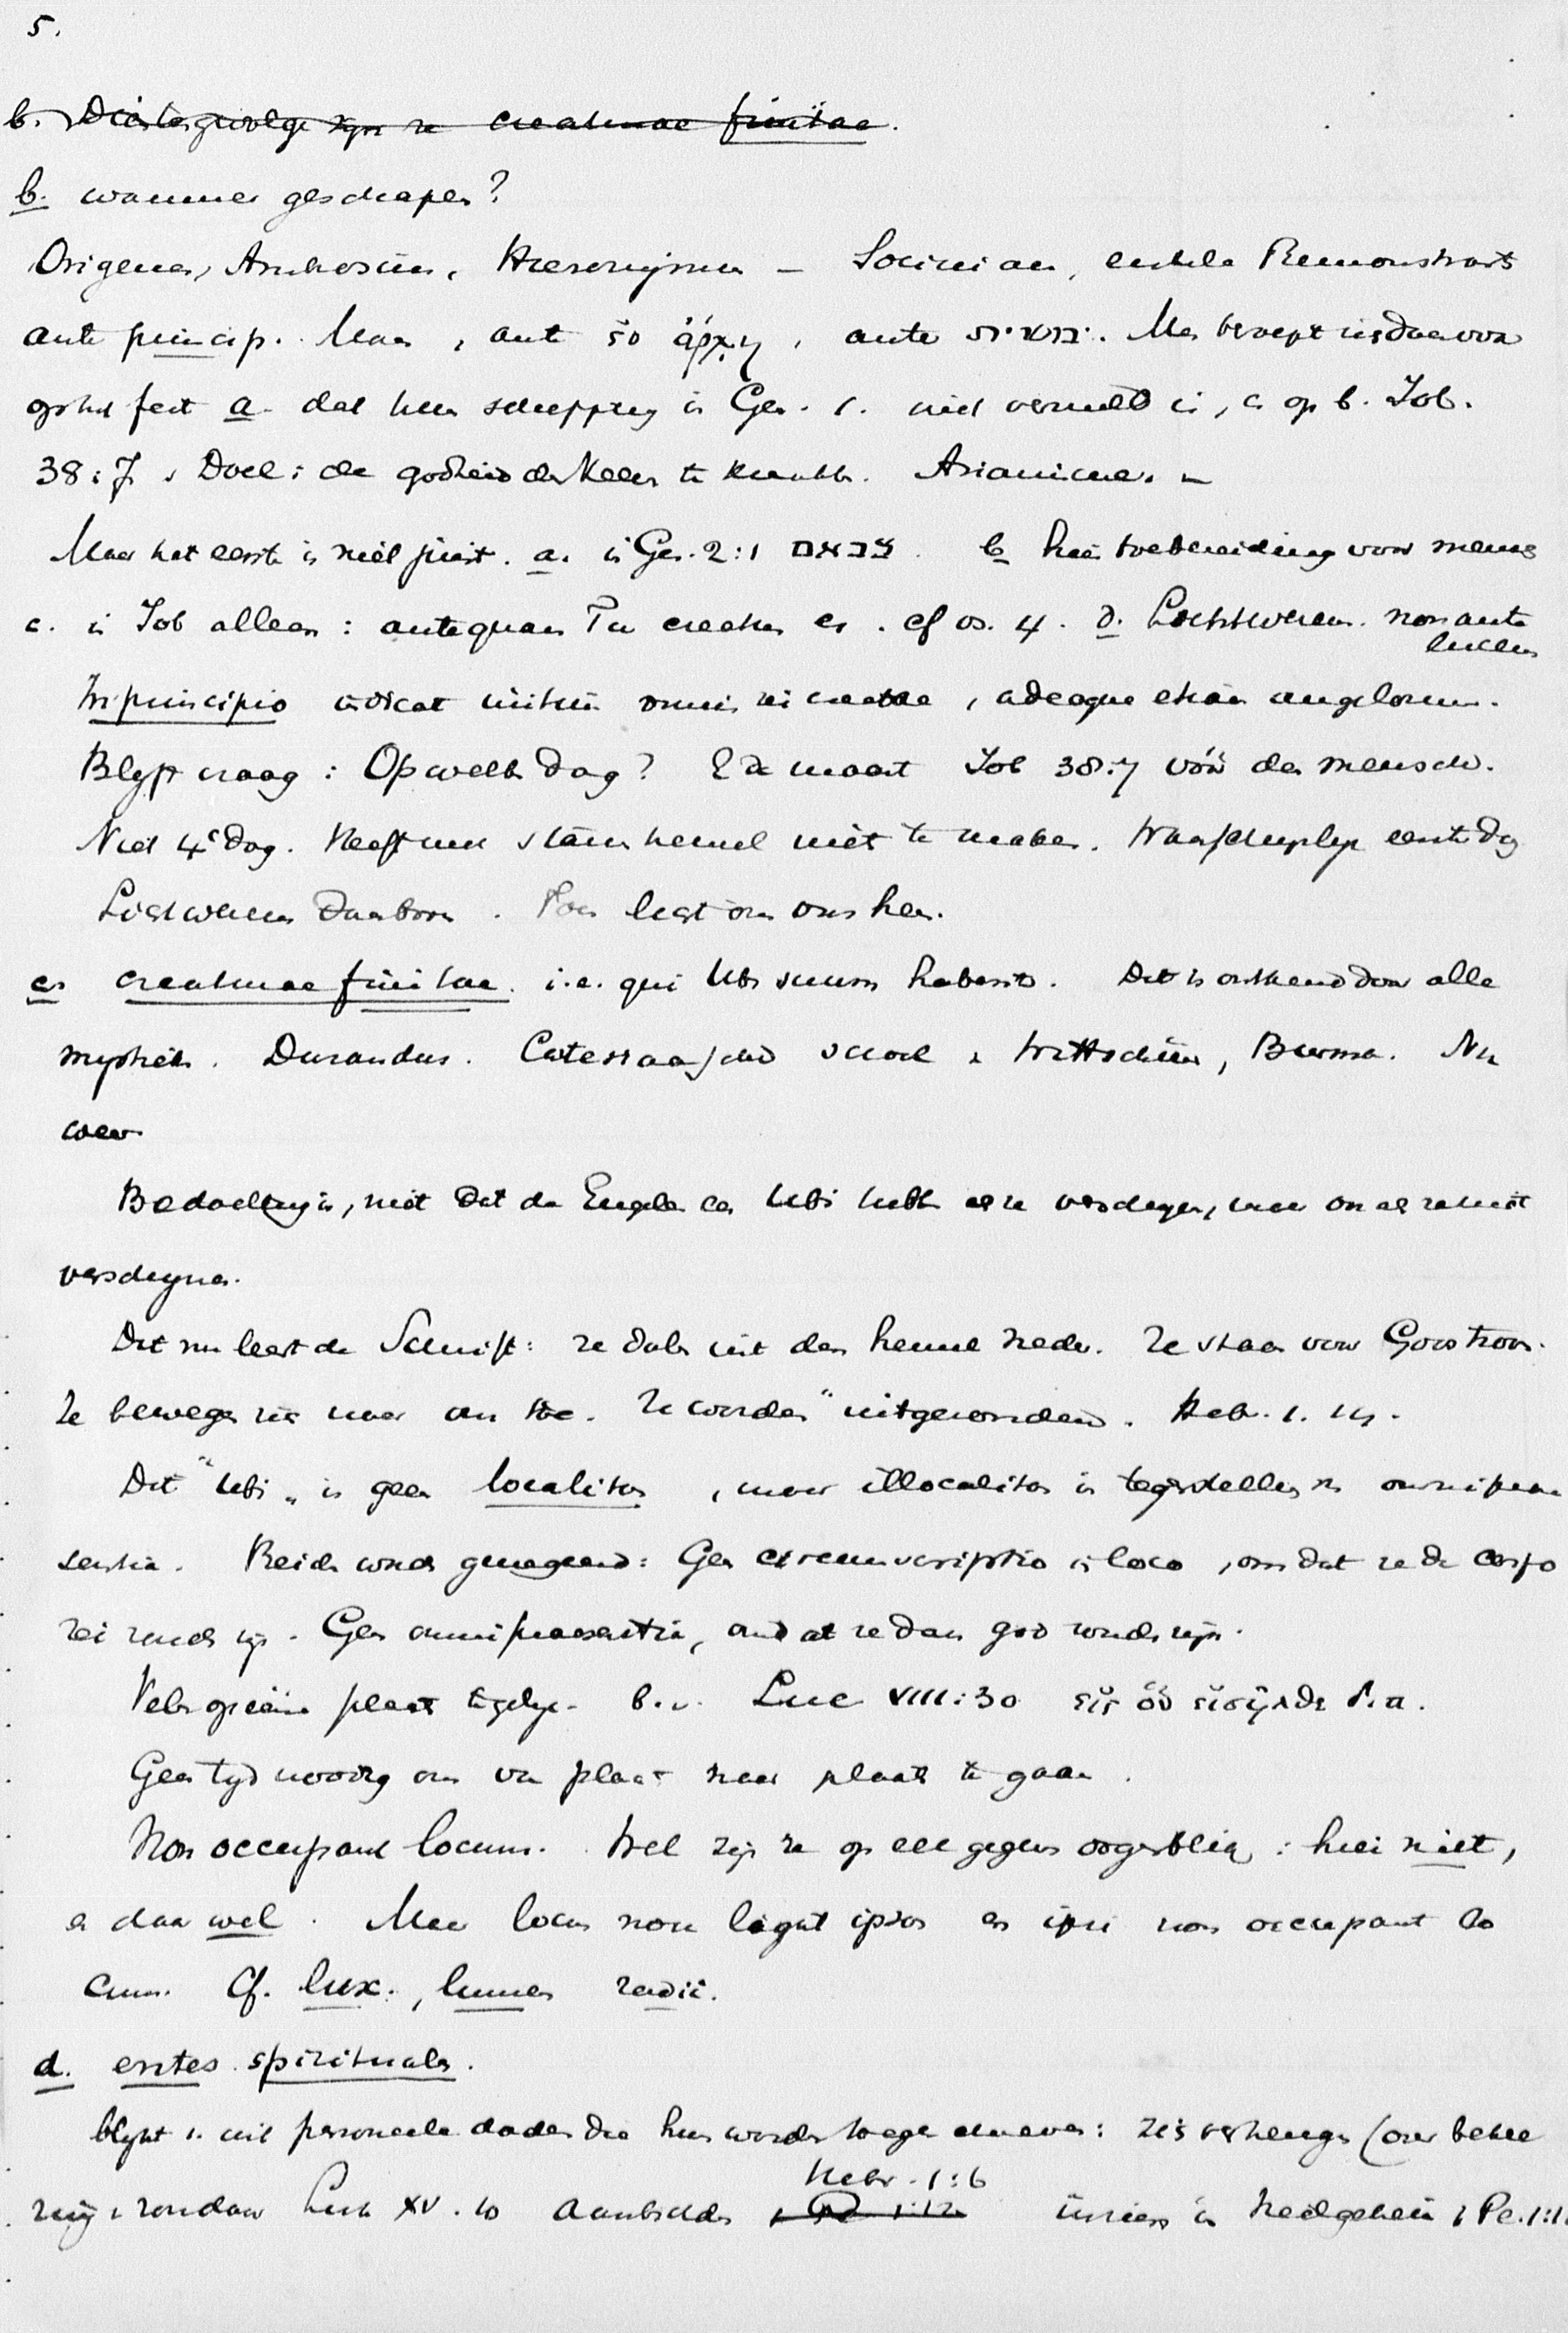 5.
b. Dientengevolge zijn ze creaturae finitae.
b. wanneer geschapen?
Origenes, Ambrosius, Hieronymus – Socinianen, enkele Remonstrants
ante princip. Maar, ante ἀρχῇ, ante. Men beroept zich daarvoor
op het feit a. dat hun schepping in Gen. 1. niet vermeld is, en op b. Job.
38:7. Doel: de godheid des Heeren te. Arianisme. –
Maar het eerste is niet juist. a. in Gen. 2:1 צבאם. b toebereiding voor mens
c. in Job alleen: antequam Tu creatus es. cf vs. 4. d. Lichtwezens. non ante
lucem
In principio indicat initium omnis rei creatae, adeoque etiam angelorum.
Blijft vraag: Op welke dag? Job 38:7 vóór den mensch.
Niet 4e dag. Heeft met sterrenhemel niet te maken. Waarschijnlijk eerste dag
Lichtwezens daarboven. licht om ons heen.
c. creaturae finitae. i.e. qui Ubi suum habent. Dit is ontkend door alle
mystieken. Durandus. Cartesiaansche school, Wittichius, Burman. Nu
weer.
Bedoeling is, niet dat de Engelen een Ubi hebben als ze verschijnen, maar ook als ze niet
verschijnen.
Dit nu leert de Schrift: ze dalen uit den hemel neder. Ze staan voor Gods troon.
Ze bewegen zich naar ons toe. Ze worden "uitgezonden. Heb. 1. 14.
Dit "Ubi" is geen localitas, maar illocalitas in tegenstelling omniprae
sentia. Beide worden genegeerd: Geen circumscriptio in loco, omdat ze dan corpo
rei zouden zijn. Geen omnipraesentia, omdat ze dan God zouden zijn.
Velen op ééne plaats tegelijk. b.v. Luc VIII:30 εἰσῆλθε δ.π.
Geen tijd noodig om van plaats naar plaats te gaan.
Non occupant locum. Wel zijn ze op elk gegeven oogenblik: hier niet,
en daar wel. Maar locus non ligat ipsos en ipsi non occupant lo
cum. Cf. lux., lumen radii.
d. entes spirituales.
blijkt 1. uit personeele daden die hun worden toegeschreven: zich verheugen (over bekee
ring v zondaar Luk XV. 10 aanbidden Hebr. 1:6 inzien in heilgeheim 1 Pe. 1:12